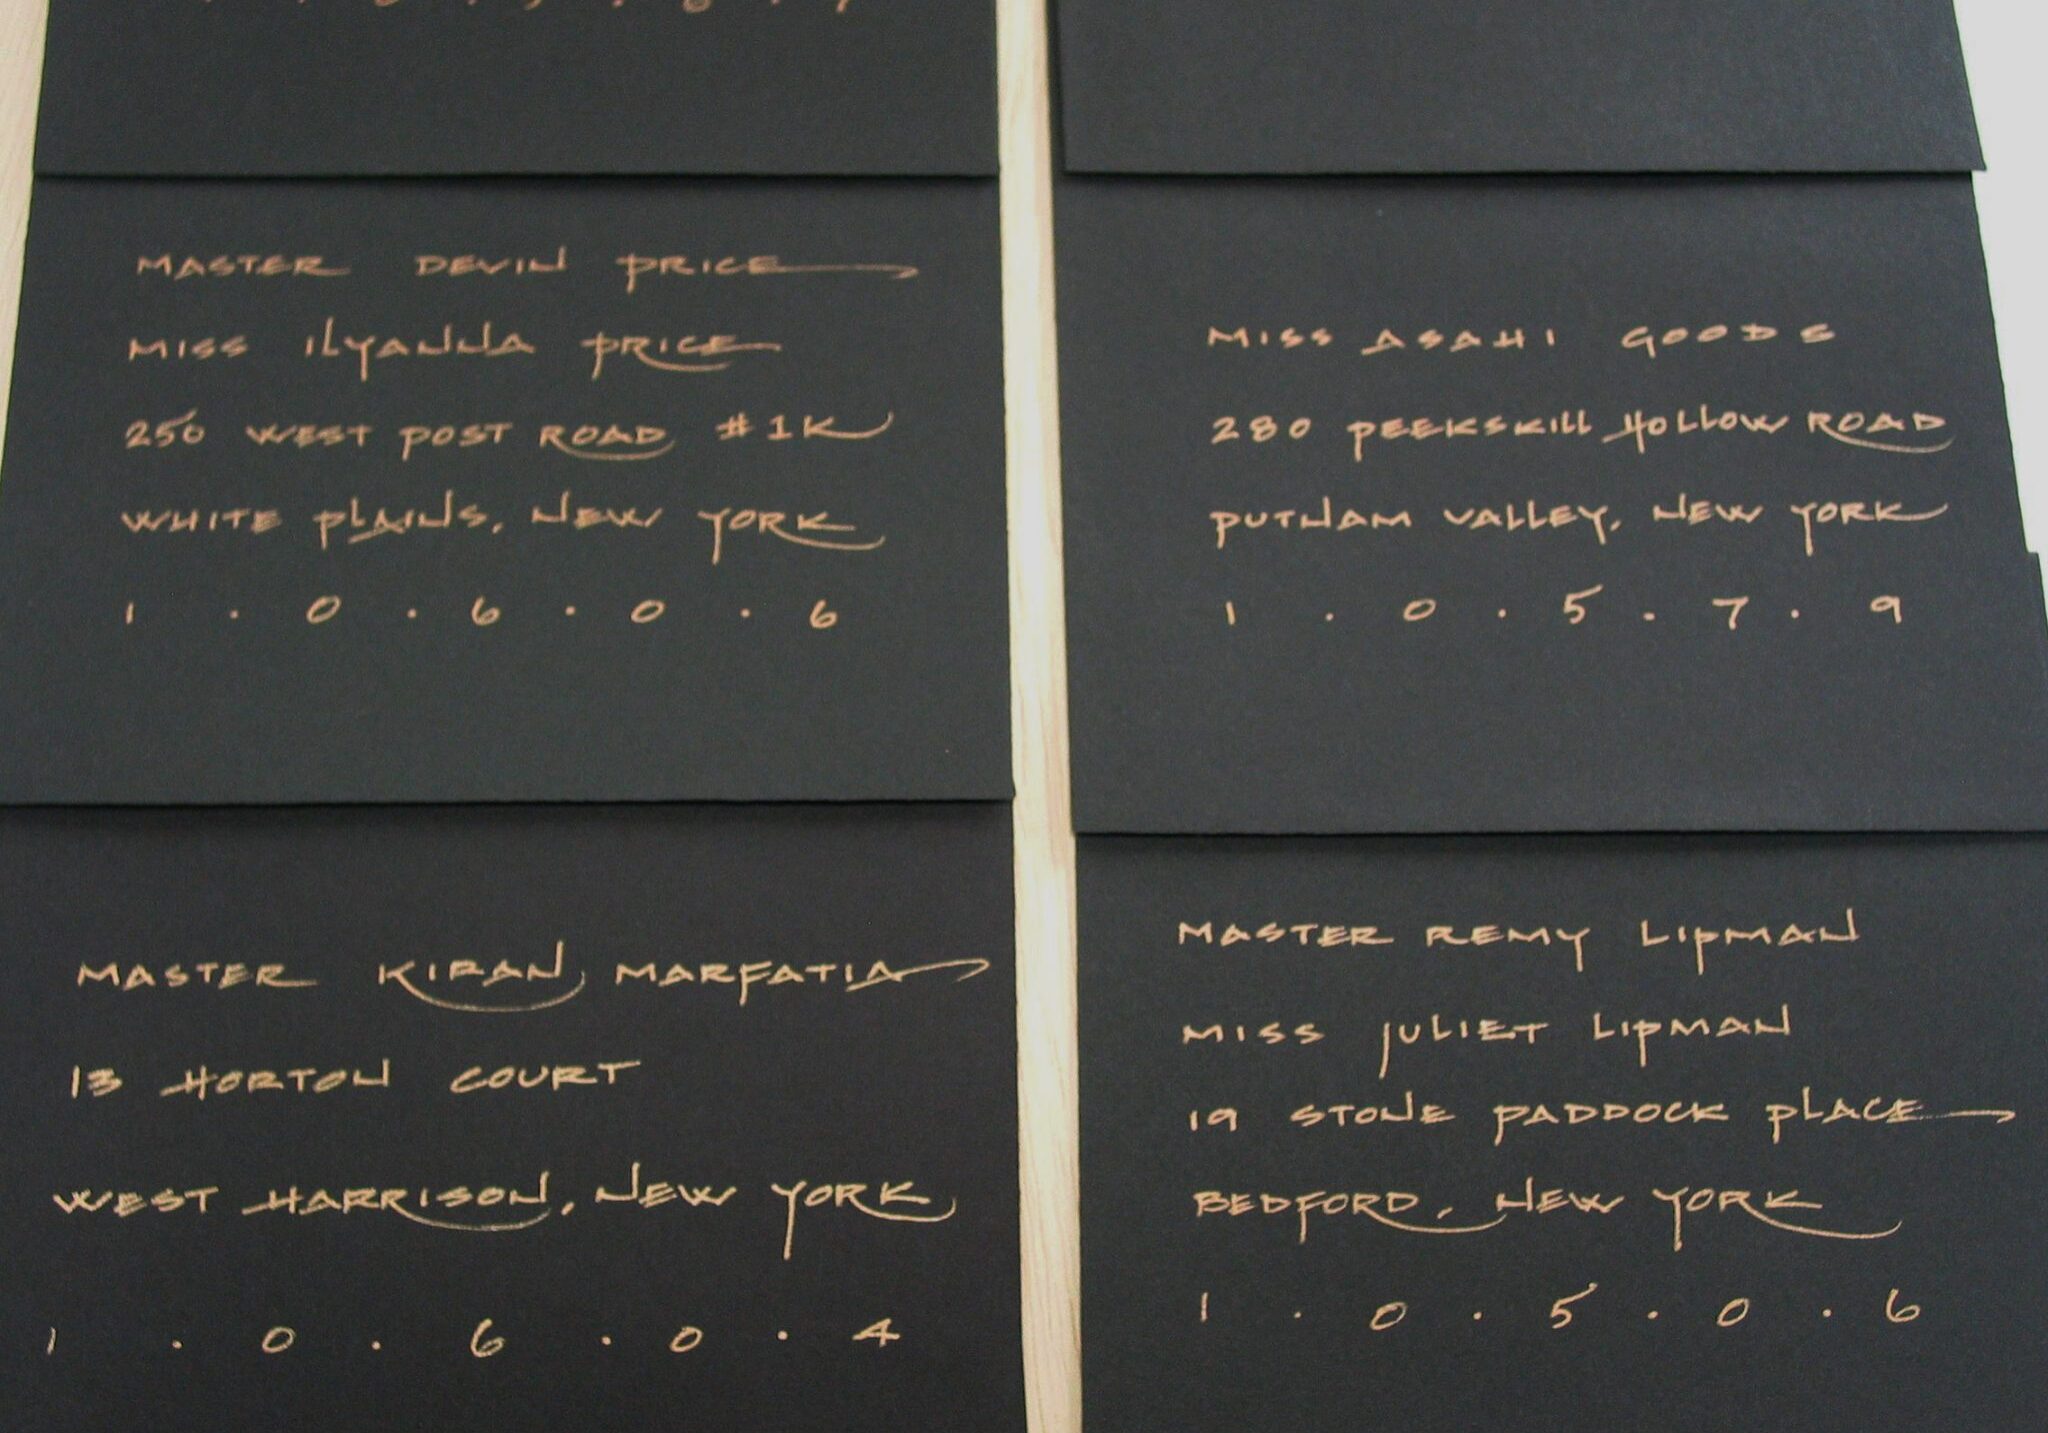 MASTER DEVIN PRICE
MISS ILYANNA PRICE
250 WEST POST ROAD #1K
WHITE PLAINS, NEW YORK
1 . 0 . 6 . 0 . 6
MISS ASAHI GOODS
280 PEEKSKILL HOLLOW ROAD
PUTNAM VALLEY, NEW YORK
1 . 0 . 5 . 7 . 9
MASTER KIRAN MARFATIA
13 HORTON COURT
WEST HARRISON, NEW YORK
1 . 0 . 6 . 0 . 4
MASTER REMY LIPMAN
MISS JULIET LIPMAN
19 STONE PADDOCK PLACE
BEDFORD, NEW YORK
1 . 0 . 5 . 0 . 6